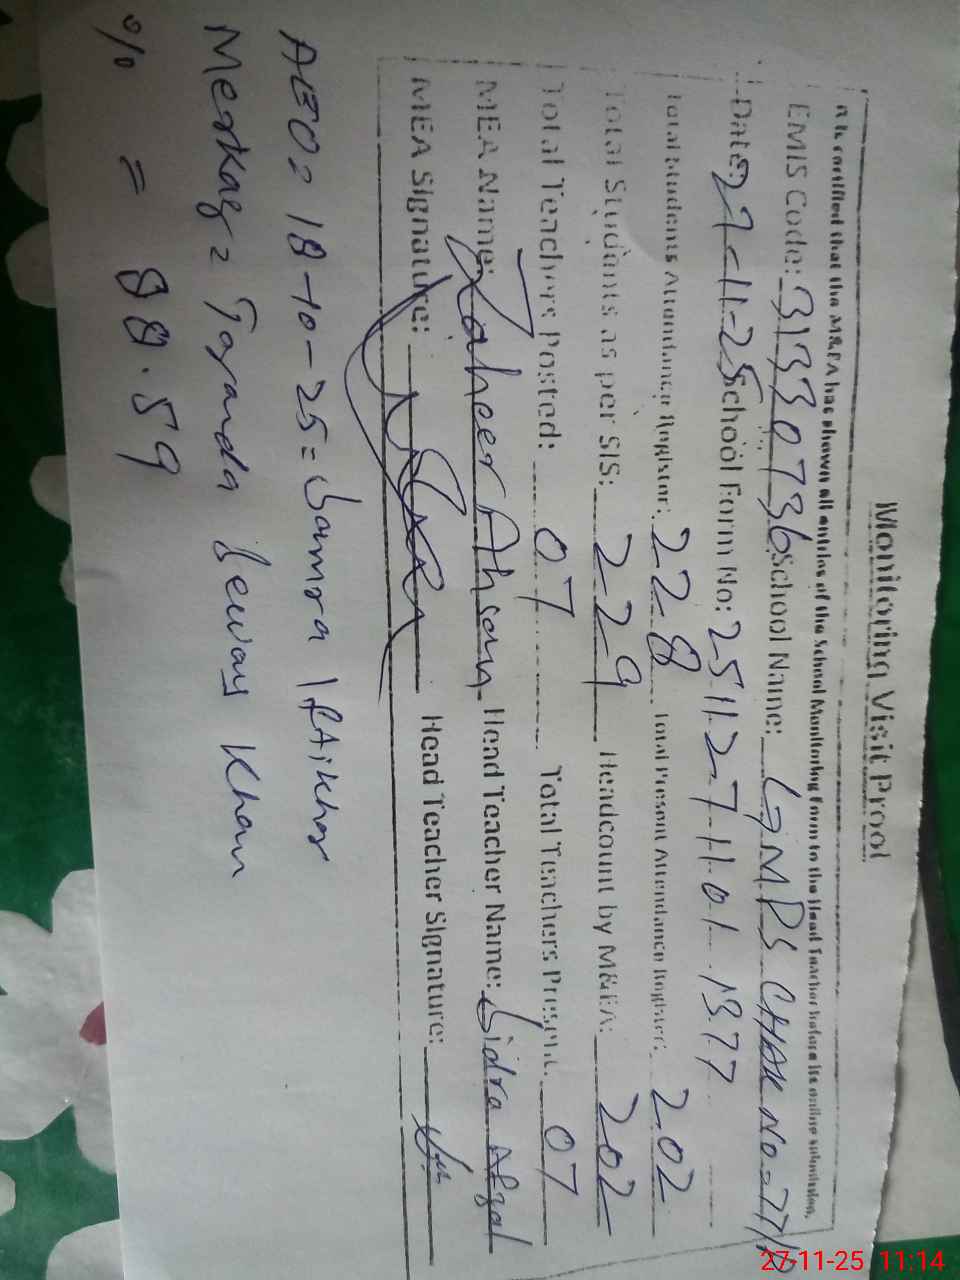 Monitoring Visit Proof
It is certified that the M&EA has shown all entries of the School Monitoring Form to the Head Teacher before its online submission.
EMIS Code: 31330736 School Name: GMPS CHAK NO = 77/
Date: 27-11-25 School Form No: 25112711011377
Total Students Attendance Register: 228 Total Present Attendance Register: 202
Total Students as per SIS: 229 Headcount by M&EA: 202
Total Teachers Posted: 07 Total Teachers Present: 07
MEA Name: Zaheer Ahsan Head Teacher Name: Sidra Afzal
MEA Signature: Head Teacher Signature:
AEO = 18-10-25 = Samra
Merkaz = Taranda Seway Khan
% = 88.59
27-11-25 11:14